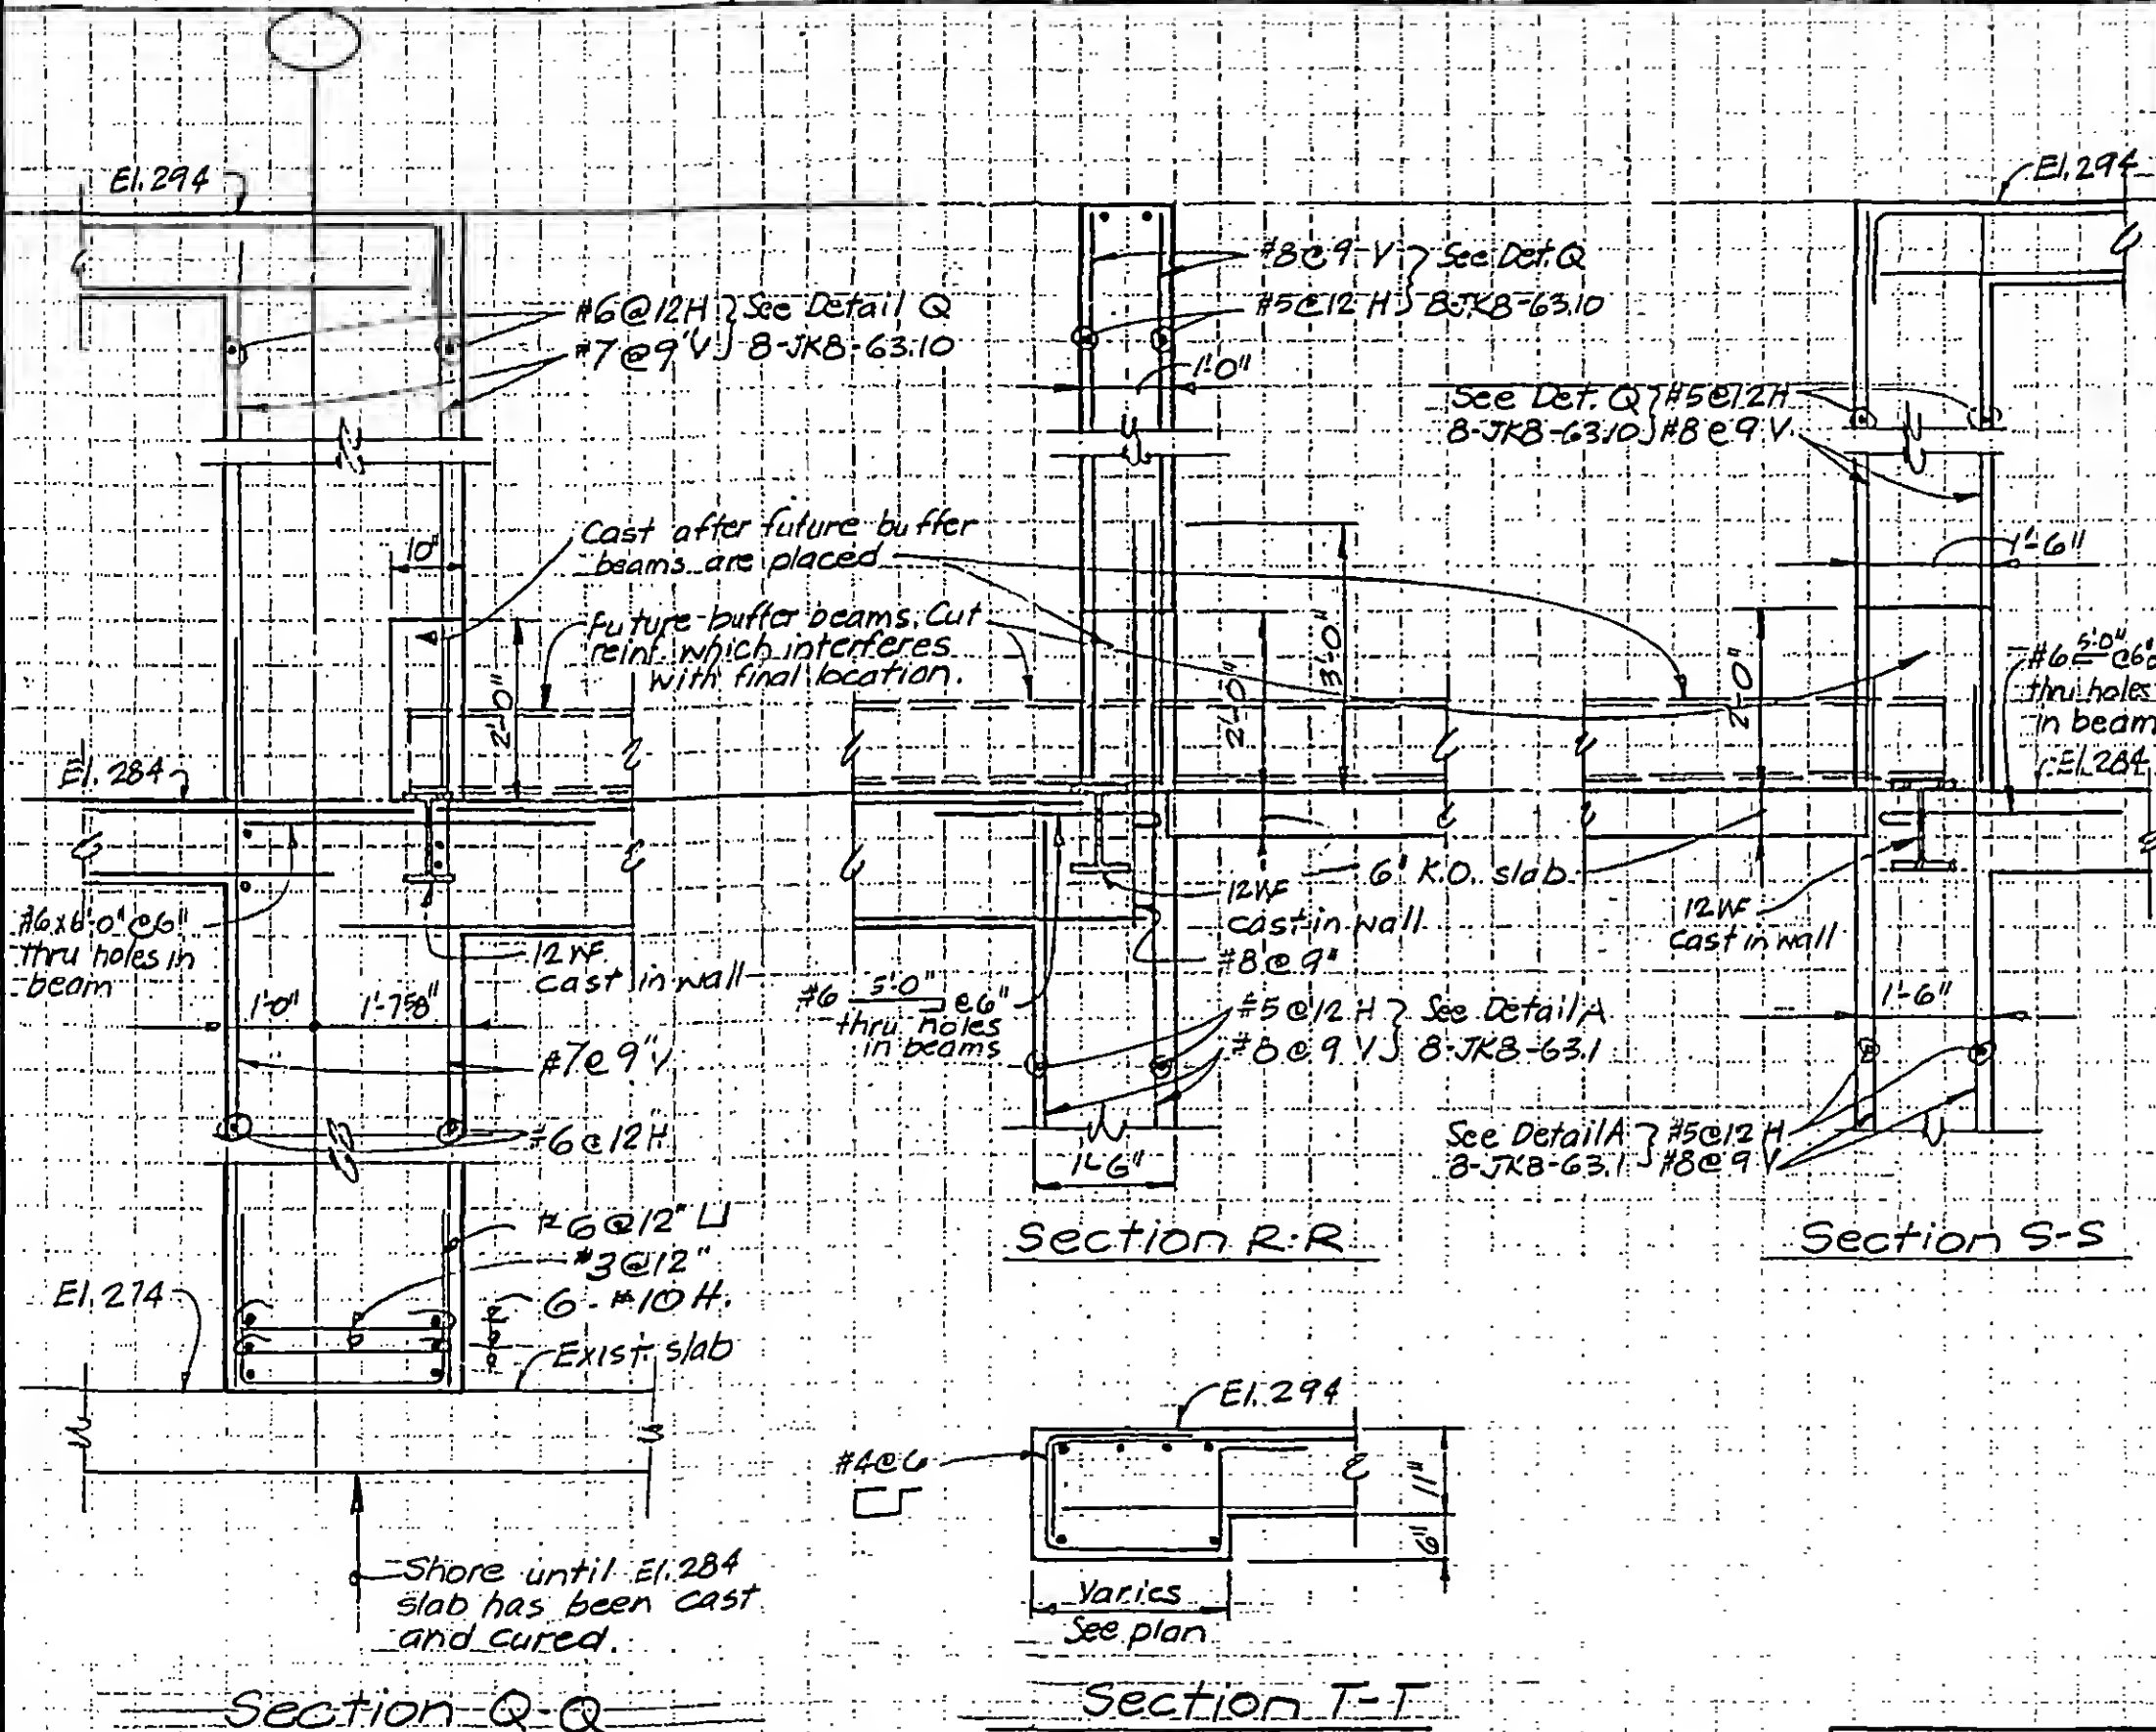 El. 294
#6@12H } See Detail Q
#7@9"V } 8-JKB-63.10
10"
Cast after future buffer
beams are placed
Future buffer beams. Cut
reinf. which interferes
with final location.
2'-0"
El. 284
#6x6'-0" @6"
thru holes in
beam
12WF
cast in wall
1'-0"
#7@9"V
#6@12H
#6@12"
#3@12"
6-#10 H.
El. 274
Exist. slab
Shore until El. 284
slab has been cast
and cured.
Section Q-Q
#8@9-V } See Det. Q
#5@12 H } 8-JKB-63.10
1'-0"
3'-0"
2'-0"
6" K.O. slab
12WF
cast in wall
#8@9"
#6 5'-0" @6"
thru holes
in beams
#5@12 H } See Detail A
#8@9 V } 8-JKB-63.1
1'-6"
Section R-R
El. 294
See Det. Q } #5@12H
8-JKB-63.10 } #8@9 V.
1'-6"
2'-0"
#6 5'-0" @6"
thru holes
in beam
El. 284
12WF
Cast in wall
1'-6"
See Detail A } #5@12 H
8-JKB-63.1 } #8@9 V
Section S-S
El. 294
#4@6
11"
6"
Varies
See plan
Section T-T